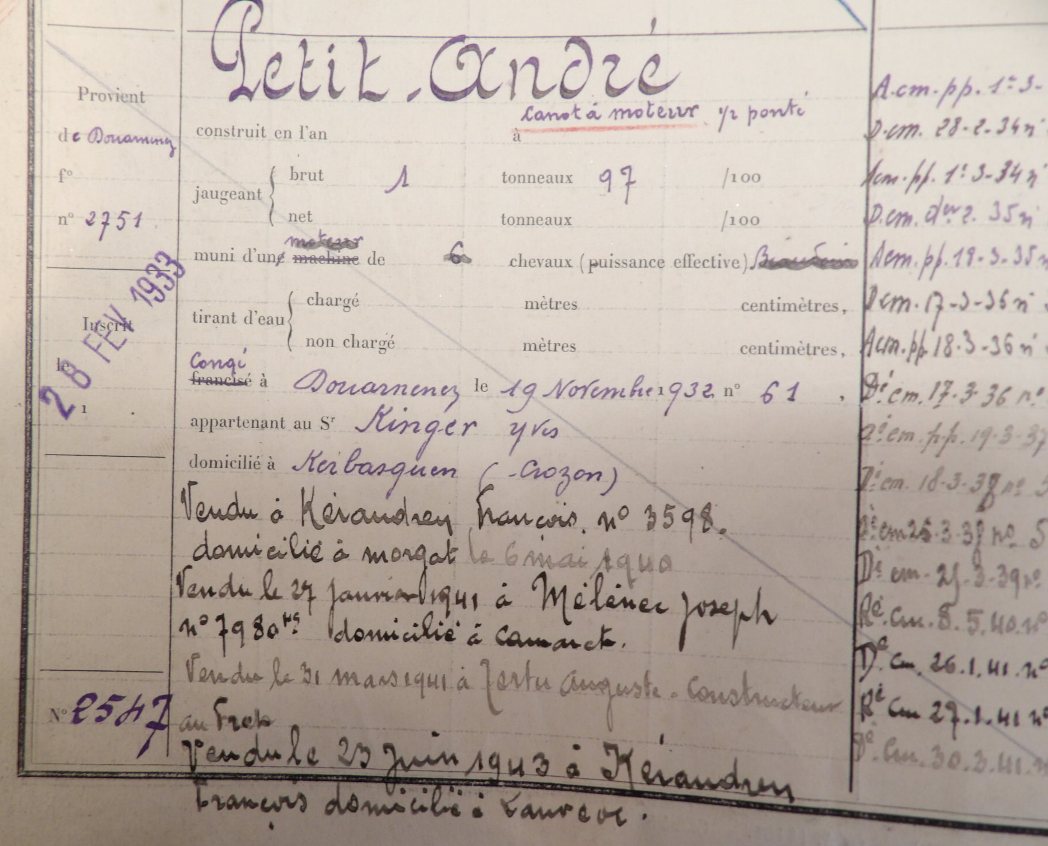 Petit André
Provient
de Douarnenez
f°
n° 2751
Inscrit
le
28 FEV 1933
1
N° 2547
canot à moteur 1/2 ponté
construit en l'an à
jaugeant brut 1 tonneaux 97 /100
net tonneaux /100
moteur
muni d'une machine de 6 chevaux (puissance effective)
tirant d'eau chargé mètres centimètres,
non chargé mètres centimètres,
Congé
francisé à Douarnenez le 19 Novembre 1932 n° 61 ,
appartenant au Sr Kinger Yves
domicilié à Kerbasguen (Crozon)
Vendu à Kérandren François n° 3598.
domicilié à morgat le 6 mai 1940
Vendu le 27 janvier 1941 à Mélénec Joseph
n° 7980 domicilié à camaret.
Vendu le 31 mars 1941 à Auguste - constructeur
au Fret
Vendu le 23 Juin 1943 à Kérandren
François domicilié à Lanvéoc.
A.cm.pp. 1° 3-
D.cm. 28-2-34 n°
Acm.pp. 1° 3-34 n°
D.cm. 2. 35 n°
Acm.pp. 19-3-35 n°
Dcm. 17-3-36 n°
Acm.pp. 18-3-36 n°
Dé cm. 17-3-36 n°
cm. pp. 19-3-37
Dé cm. 18-3-38 n° 5
cm 25-3-38 n° 5
Dé cm. 25-3-39 n°
Ré. cm. 8.5.40. n°
Dé cm. 26.1.41. n°
Ré cm 27.1.41 n°
Dé cm. 30.3.41. n°